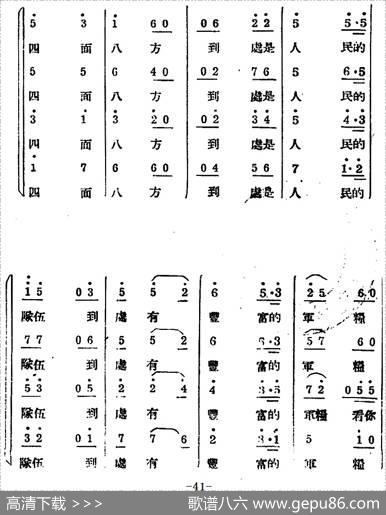 5 3 | 1 6 0 | 0 6 2 2 | 5 5·5
四 面 八 方 到 處是 人 民的
5 5 6 4 0 | 0 2 7 6 5 6·5
四 面 八 方 到 處是 人 民的
3 1 3 2 0 0 2 3 4 5 4·3
四 面 八 方 到 處是 人 民的
1 7 6 6 0 0 4 5 6 7 1·2
四 面 八 方 到 處是 人 民的
1 5 0 3 | 5 5 2 | 6 5·3 | 2 5 6 0
隊伍 到 處 有 豐 富的 軍 糧
7 7 0 6 5 5 2 6 6·3 5 7 6 0
隊伍 到 處 有 豐 富的 軍 糧
5 3 0 5 2 2 4 4 3·5 7 2 0 5 5
隊伍 到 處 有 豐 富的 軍糧 看你
3 2 0 1 7 7 6 2 3·1 5 1 0
隊伍 到 處 有 豐 富的 軍 糧
-41-
高清下载 >>> 歌谱八六 www.gepu86.com